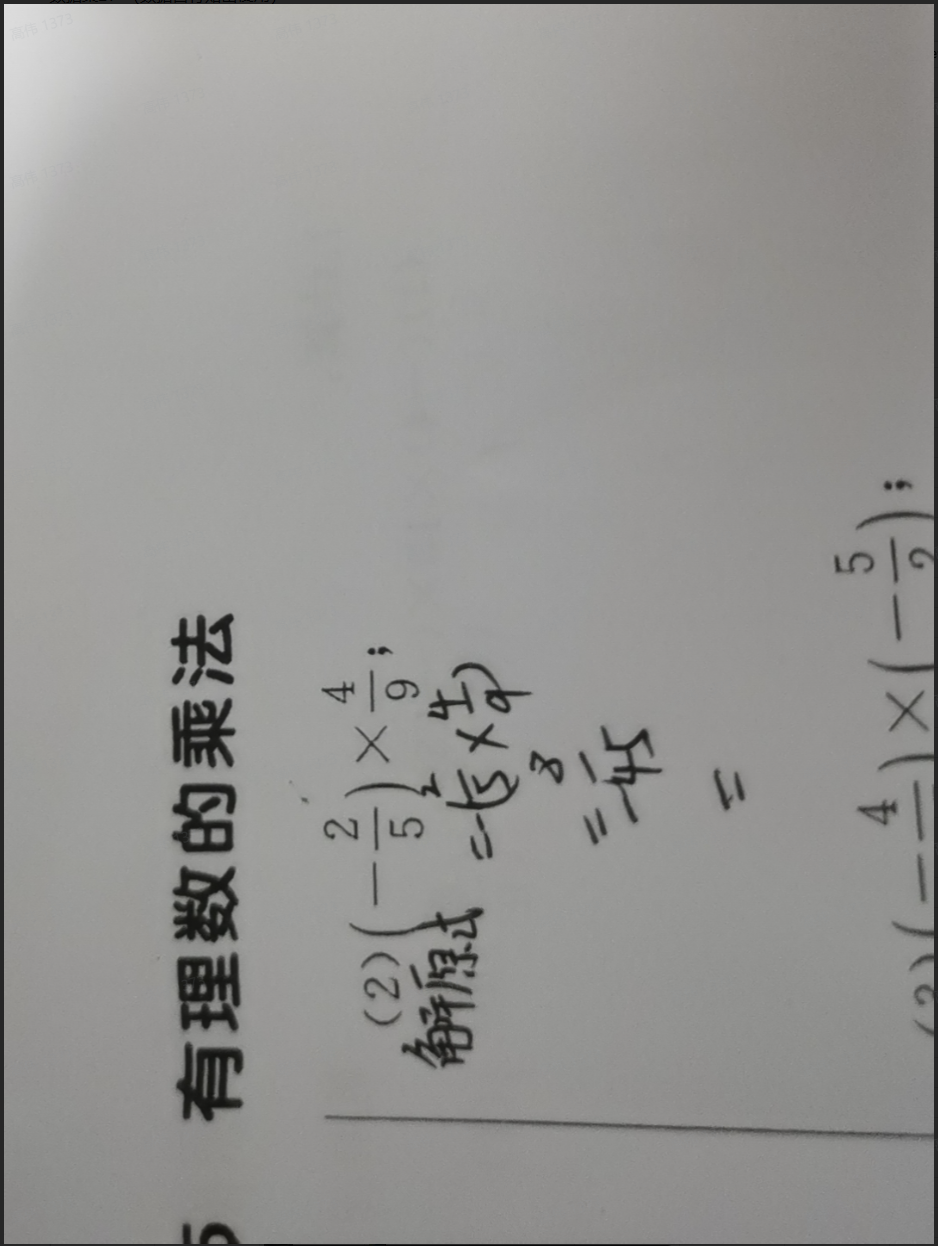 有理数的乘法
(2)(-2/5)×4/9;
解原式=-(2/5×4/9)
=-8/45
=
(-4/
)×(-5/2);